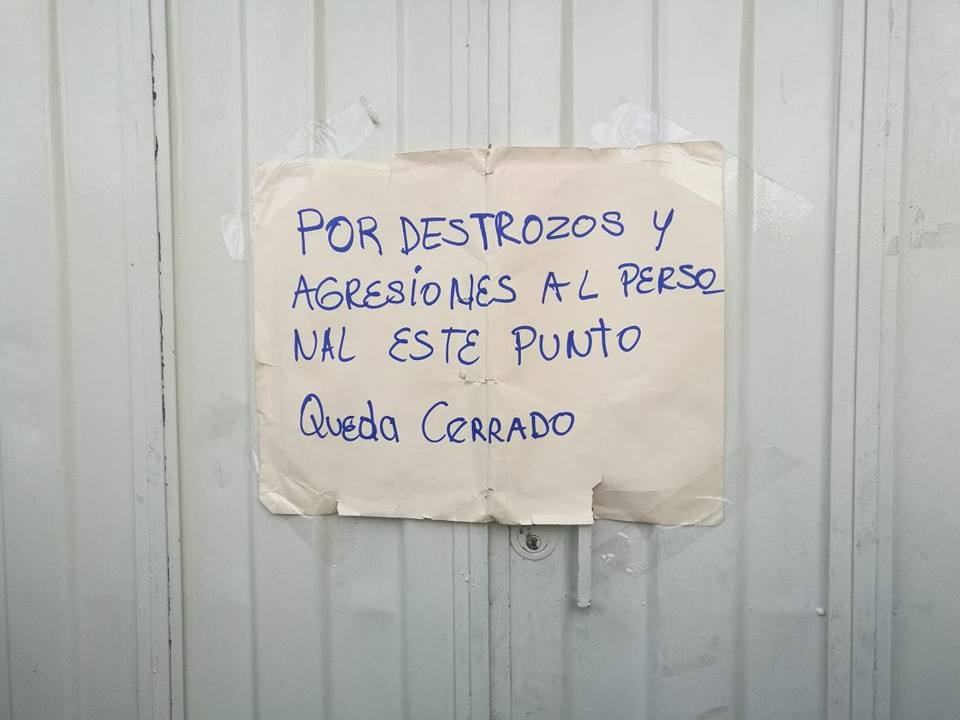 POR DESTROZOS Y
AGRESIONES AL PERSO
NAL ESTE PUNTO
Queda CERRADO